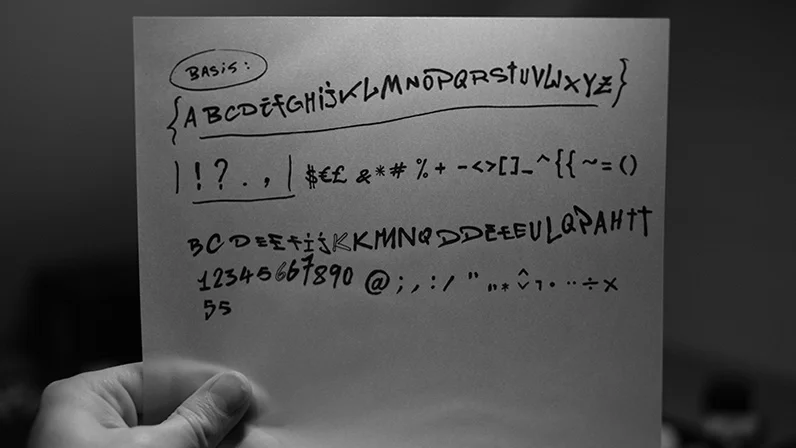 BASIS:
{ABCDEfGHijKLMNOPQRStUVWXYZ}
|!?.,| $€£ &*# %+ -<>[]_^{{~=()
BCDEEfijKKMNQDDEEEULQPAHtt
12345667890 @;,:/ " „* ^ˇ¬• ·· ÷×
55